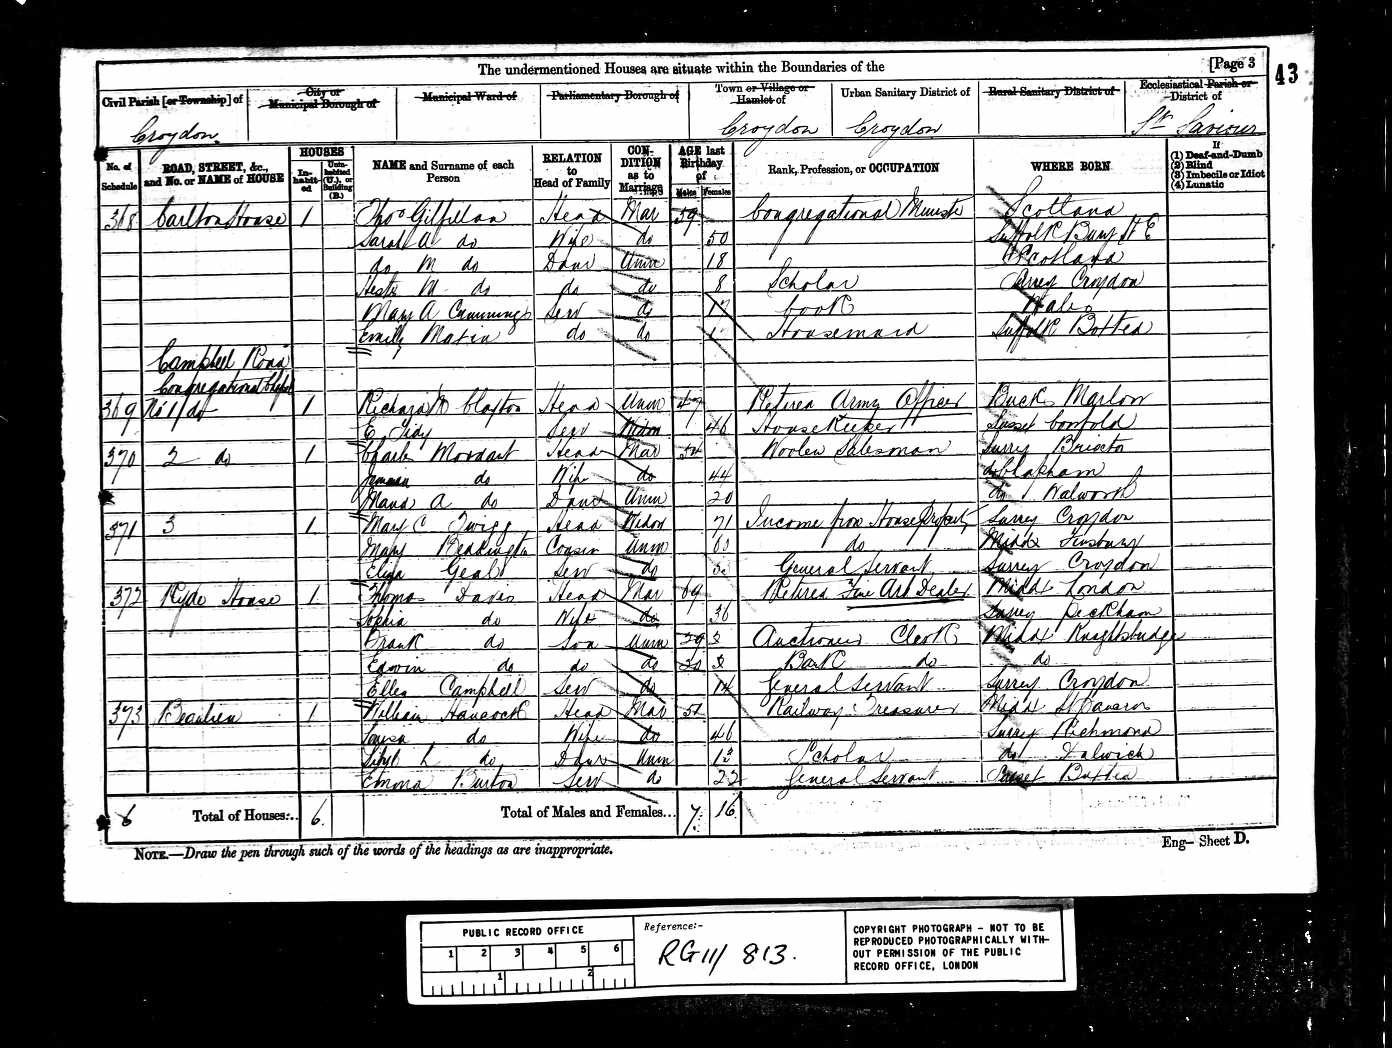 The undermentioned Houses are situate within the Boundaries of the
[Page 3
43
Civil Parish [or Township] of
City or Municipal Borough of
Municipal Ward of
Parliamentary Borough of
Town or Village or Hamlet of
Urban Sanitary District of
Rural Sanitary District of
Ecclesiastical Parish or District of
Croydon
Croydon
Croydon
St Saviour
No. of Schedule
ROAD, STREET, &c., and No. or NAME of HOUSE
HOUSES
In-habit-ed
Unin-habited (U.), or Building (B.)
NAME and Surname of each Person
RELATION to Head of Family
CON-DITION as to Marriage
AGE last Birthday of
Males
Females
Rank, Profession, or OCCUPATION
WHERE BORN
If
(1) Deaf-and-Dumb
(2) Blind
(3) Imbecile or Idiot
(4) Lunatic
368 Carlton House 1 Thos Gilfillan Head Mar 59 Congregational Minister Scotland
Sarah A do Wife do 50 Suffolk Bury St E
do M do Daur Unm 18 Scotland
M do do do 8 Scholar Surrey Croydon
Mary A Cummings Serv do Cook Wales
Emily do do Housemaid Suffolk
Campbell Road
Congregational
369 No 1 do 1 Richard Claxton Head Unm 47 Retired Army Officer Buck Marlow
E Tidy Serv 46 House Keeper
370 2 do 1 Charles Mordart Head Mar 54 Woolen Salesman Surrey
do Wife do 44 do Clapham
Maud A do Daur Unm 20 do Walworth
371 3 1 Mary C Twigg Head Widow 71 Income from House Property Surrey Croydon
Mary Cousin Unm do Midd Finsbury
Eliza Serv do General Servant Surrey Croydon
372 Ryde House 1 Thomas Davis Head Mar 69 Retired Fine Art Dealer Midd London
Sophia do Wife do 36 Surrey Peckham
Frank do Son Unm 29 Auctioneer Clerk Midd Knightsbridge
Edwin do do do 20 Bank do do
Ellen Campbell Serv do 14 General Servant Surrey Croydon
373 Beaulieu 1 William Hancock Head Mar Railway Treasurer Midd St Pancras
Louisa do Wife do 46 Surrey Richmond
Sibyl L do Daur Unm 13 Scholar do Dulwich
Emma Burton Serv do 22 General Servant Buxted
6 Total of Houses... 6 Total of Males and Females... 7 16
NOTE.—Draw the pen through such of the words of the headings as are inappropriate.
Eng- Sheet D.
PUBLIC RECORD OFFICE
1 2 3 4 5 6
1 2
Reference:-
RG11/ 813.
COPYRIGHT PHOTOGRAPH - NOT TO BE
REPRODUCED PHOTOGRAPHICALLY WITH-
OUT PERMISSION OF THE PUBLIC
RECORD OFFICE, LONDON